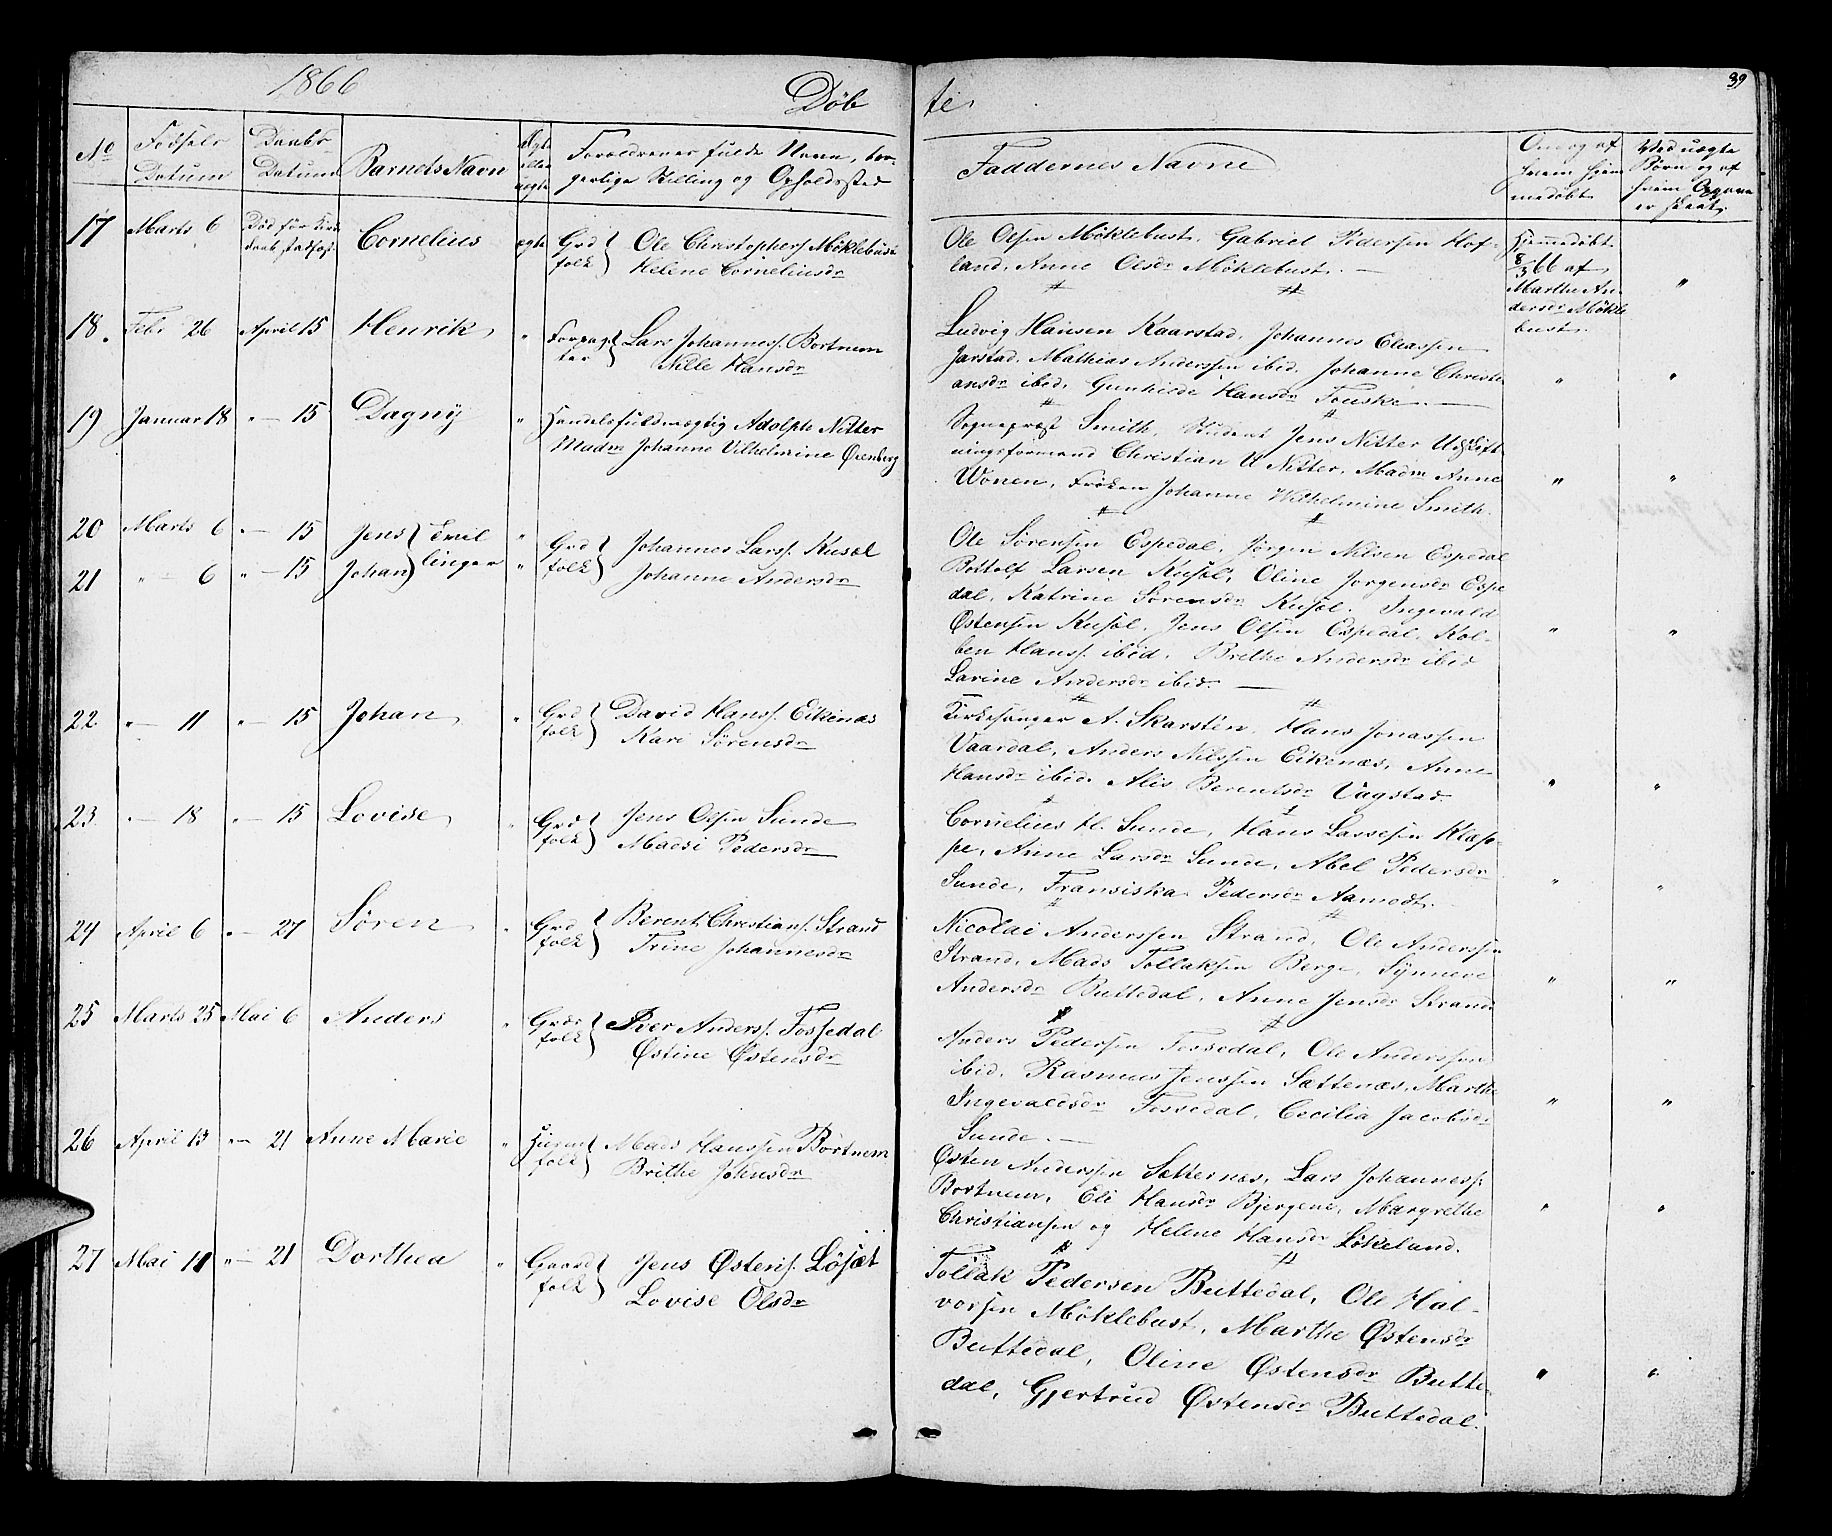 1866
Döb
te.
39
No
Fødsels
Datum
Daabs-
Datum
Barnets Navn
Ægte
eller
uægte
Forældrenes fulde Navn, bor-
gerlige Stilling og Opholdssted
Faddernes Navne
Om og af
hvem hjem
medøbt
Ved uægte
Børn og af
hvem Opgave
er skeet.
17 Marts 6 Død før Kirke
Cornelius ægte Grd
folk } Ole Christophers. Möklebust
Helene Corneliusdr
Ole Olsen Möklebust, Gabriel Pedersen Hof-
land, Anne Olsdr Möklebust. —
Hjemmedøbt
8/3 66 af
Marthe An-
dersdr Mökle
bust.
"
18. Febr 26 April 15 Henrik " Forpag
ter } Lars Johanness. Bortnem
Nille Hansdr
Ludvig Hansen Kaarstad, Johannes Eliassen
Jarstad, Mathias Anderssen ibid, Johanne Christi
ansdr ibid, Gunhilde Hansdr Fouske. —
" "
19 Januar 18 " — 15 Dagny " Handelsfuldmægtig Adolph Nitter
Madm Johanne Vilhelmine Ørenberg
Sognepræst Smith, Student Jens Nitter Udskift-
ningsformand Christian U Nitter, Madm Anne
Wonen, Frøken Johanne Wilhelmine Smith.
" "
20 Marts 6 " — 15 Jens } Tvil
21 " — 6 " — 15 Johan } linger
" Grd
" folk } Johannes Larss. Kusöl
Johanne Andersdr
Ole Sörensen Espedal, Jörgen Nilsen Espedal
Bottolf Larsen Kusöl, Oline Jorgensdr Espe
dal, Katrine Sörensdr Kusöl. Ingevald
Östensen Kusöl, Jens Olsen Espedal, Kol-
ben Hanss. ibid, Brithe Andersdr ibid
Larine Andersdr ibid. —
" "
22 " — 11 " — 15 Johan " Grd
folk } David Hanss. Eikenæs
Kari Sörensdr
Kirkesanger A. Skarstin, Hans Jonassen
Vaardal, Anders Nilssen Eikenæs, Anne
Hansdr ibid. Alis Berentsdr Vagstad
" "
23. " — 18 " — 15 Lovise " Grd
folk } Jens Olsen Sunde
Madsi Pedersdr
Cornelius H. Sunde, Hans Lassesen Klæp-
pe, Anne Larsdr Sunde, Abel Pedersdr
Sunde, Fransiska Pedersdr Aamodt.
" "
24 April 6 " — 27 Sören " Grd
folk } Berent Christians. Strand
Trine Johannesdr
Nicolai Anderssen Strand, Ole Anderssen
Strand, Mads Tollaksen Berge, Synneve
Andersdr Buttedal, Anne Jensdr Strand
" "
25 Marts 25 Mai 6 Anders " Grdr
folk } Peer Anderss. Fossedal
Östine Östensdr
Anders Pedersen Fossedal, Ole Anderssen
ibid, Rasmus Jenssen Sættenæs, Marthe
Ingevaldsdr Fossedal, Cecilia Jacobsdr
Sunde. —
" "
26 April 13 " — 21 Anne Marie "
folk } Mads Hanssen Börtnem
Brithe Johnsdr
Östen Anderssen Sætternæs, Lars Johanness.
Bortnem, Eli Hansdr Bjergene, Margrethe
Christiansen og Helene Hansdr Lökeland.
" "
27 Mai 11 " — 21 Dorthea " Gaard
folk } Jens Östens. Lösæt
Lovise Olsdr
Tollak Pedersen Buttedal, Ole Hal-
vorsen Möklebust, Marthe Östensdr
Buttedal, Oline Östensdr Butte-
dal, Gjertrud Östensdr Buttedal.
" "